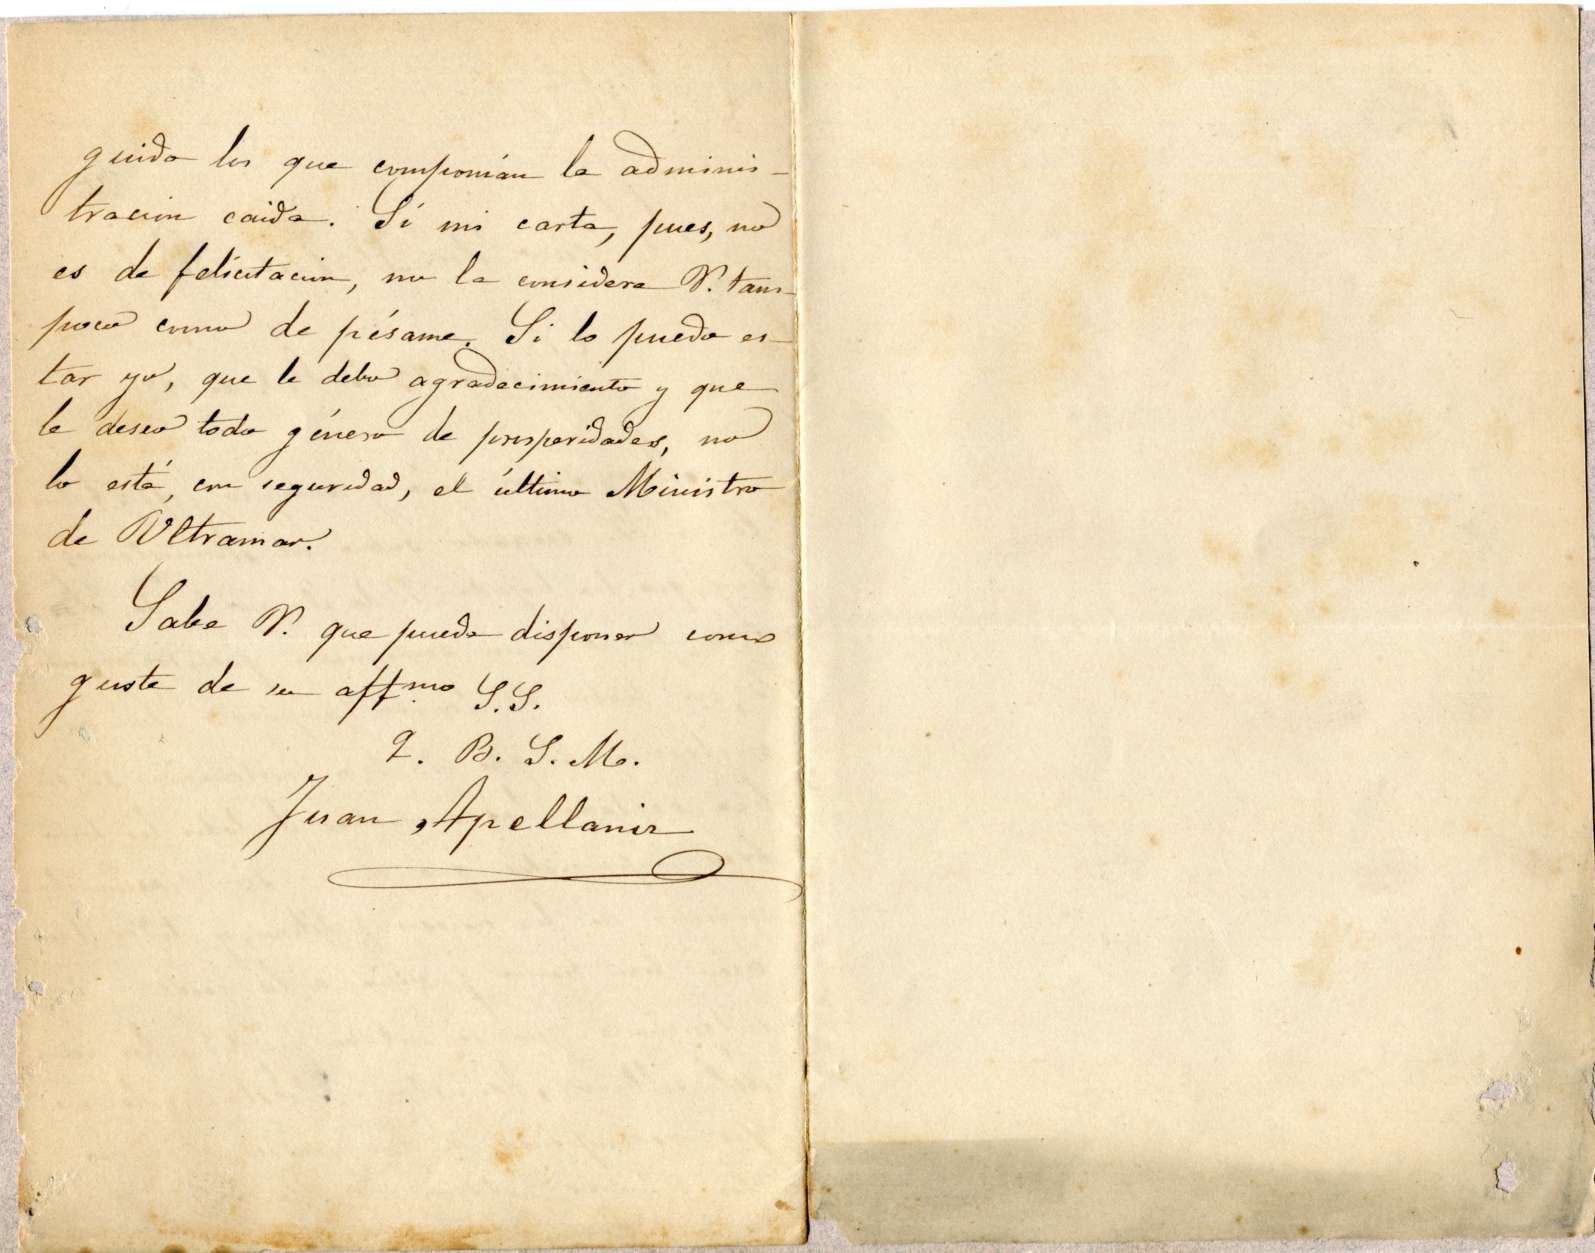 guido los que componían la adminis-
tracion caida. Sí mi carta, pues, no
es de felicitacion, no la considere V. tam-
poco como de pésame. Si lo puedo es-
tar yo, que le debo agradecimiento y que
le deseo todo género de prosperidades, no
lo está, con seguridad, el último Ministro
de Ultramar.
Sabe V. que puede disponer como
guste de su aff.mo S.S.
q. B. S. M.
Juan Apellaniz